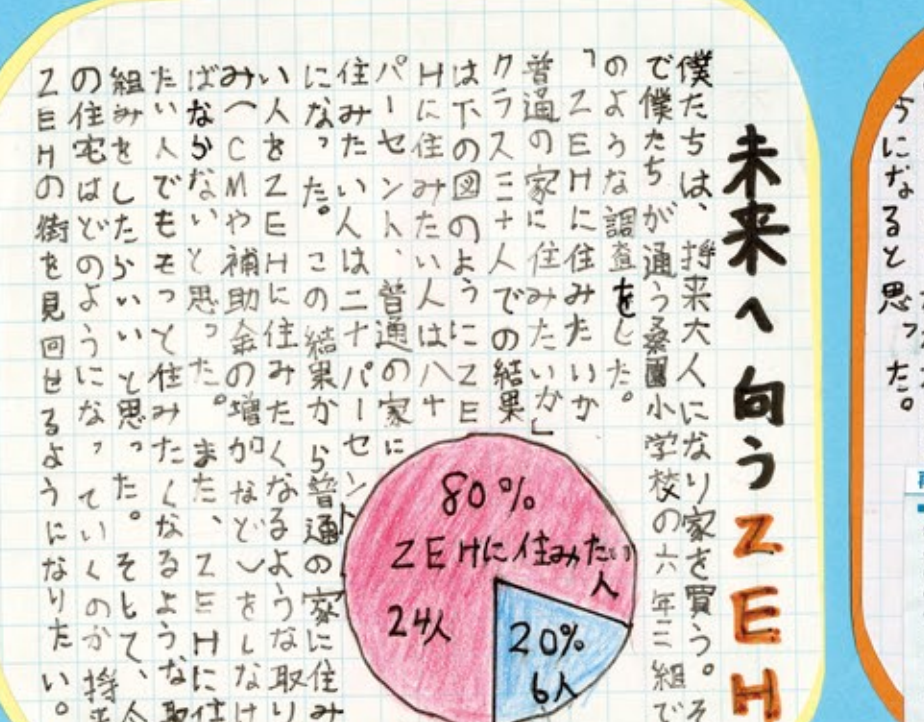 うになると思った。
未来へ向うZEH
僕たちは、将来大人になり家を買う。そ
で僕たちが通う桑園小学校の六年三組で
のような調査をした。
「ZEHに住みたいか
普通の家に住みたいか」
クラス三十人での結果
は下の図のようにZE
Hに住みたい人は八十
パーセント、普通の家に
住みたい人は二十パーセント
になった。この結果から普通の家に住み
い人をZEHに住みたくなるような取り
み(CMや補助金の増加など)をしなけ
ばならないと思った。また、ZEHに住
たい人でももっと住みたくなるような取
組みをしたらいいと思った。そして、今
の住宅はどのようになっていくのか将来
ZEHの街を見回せるようになりたい。
80%
ZEHに住みたい
人
24人
20%
6人